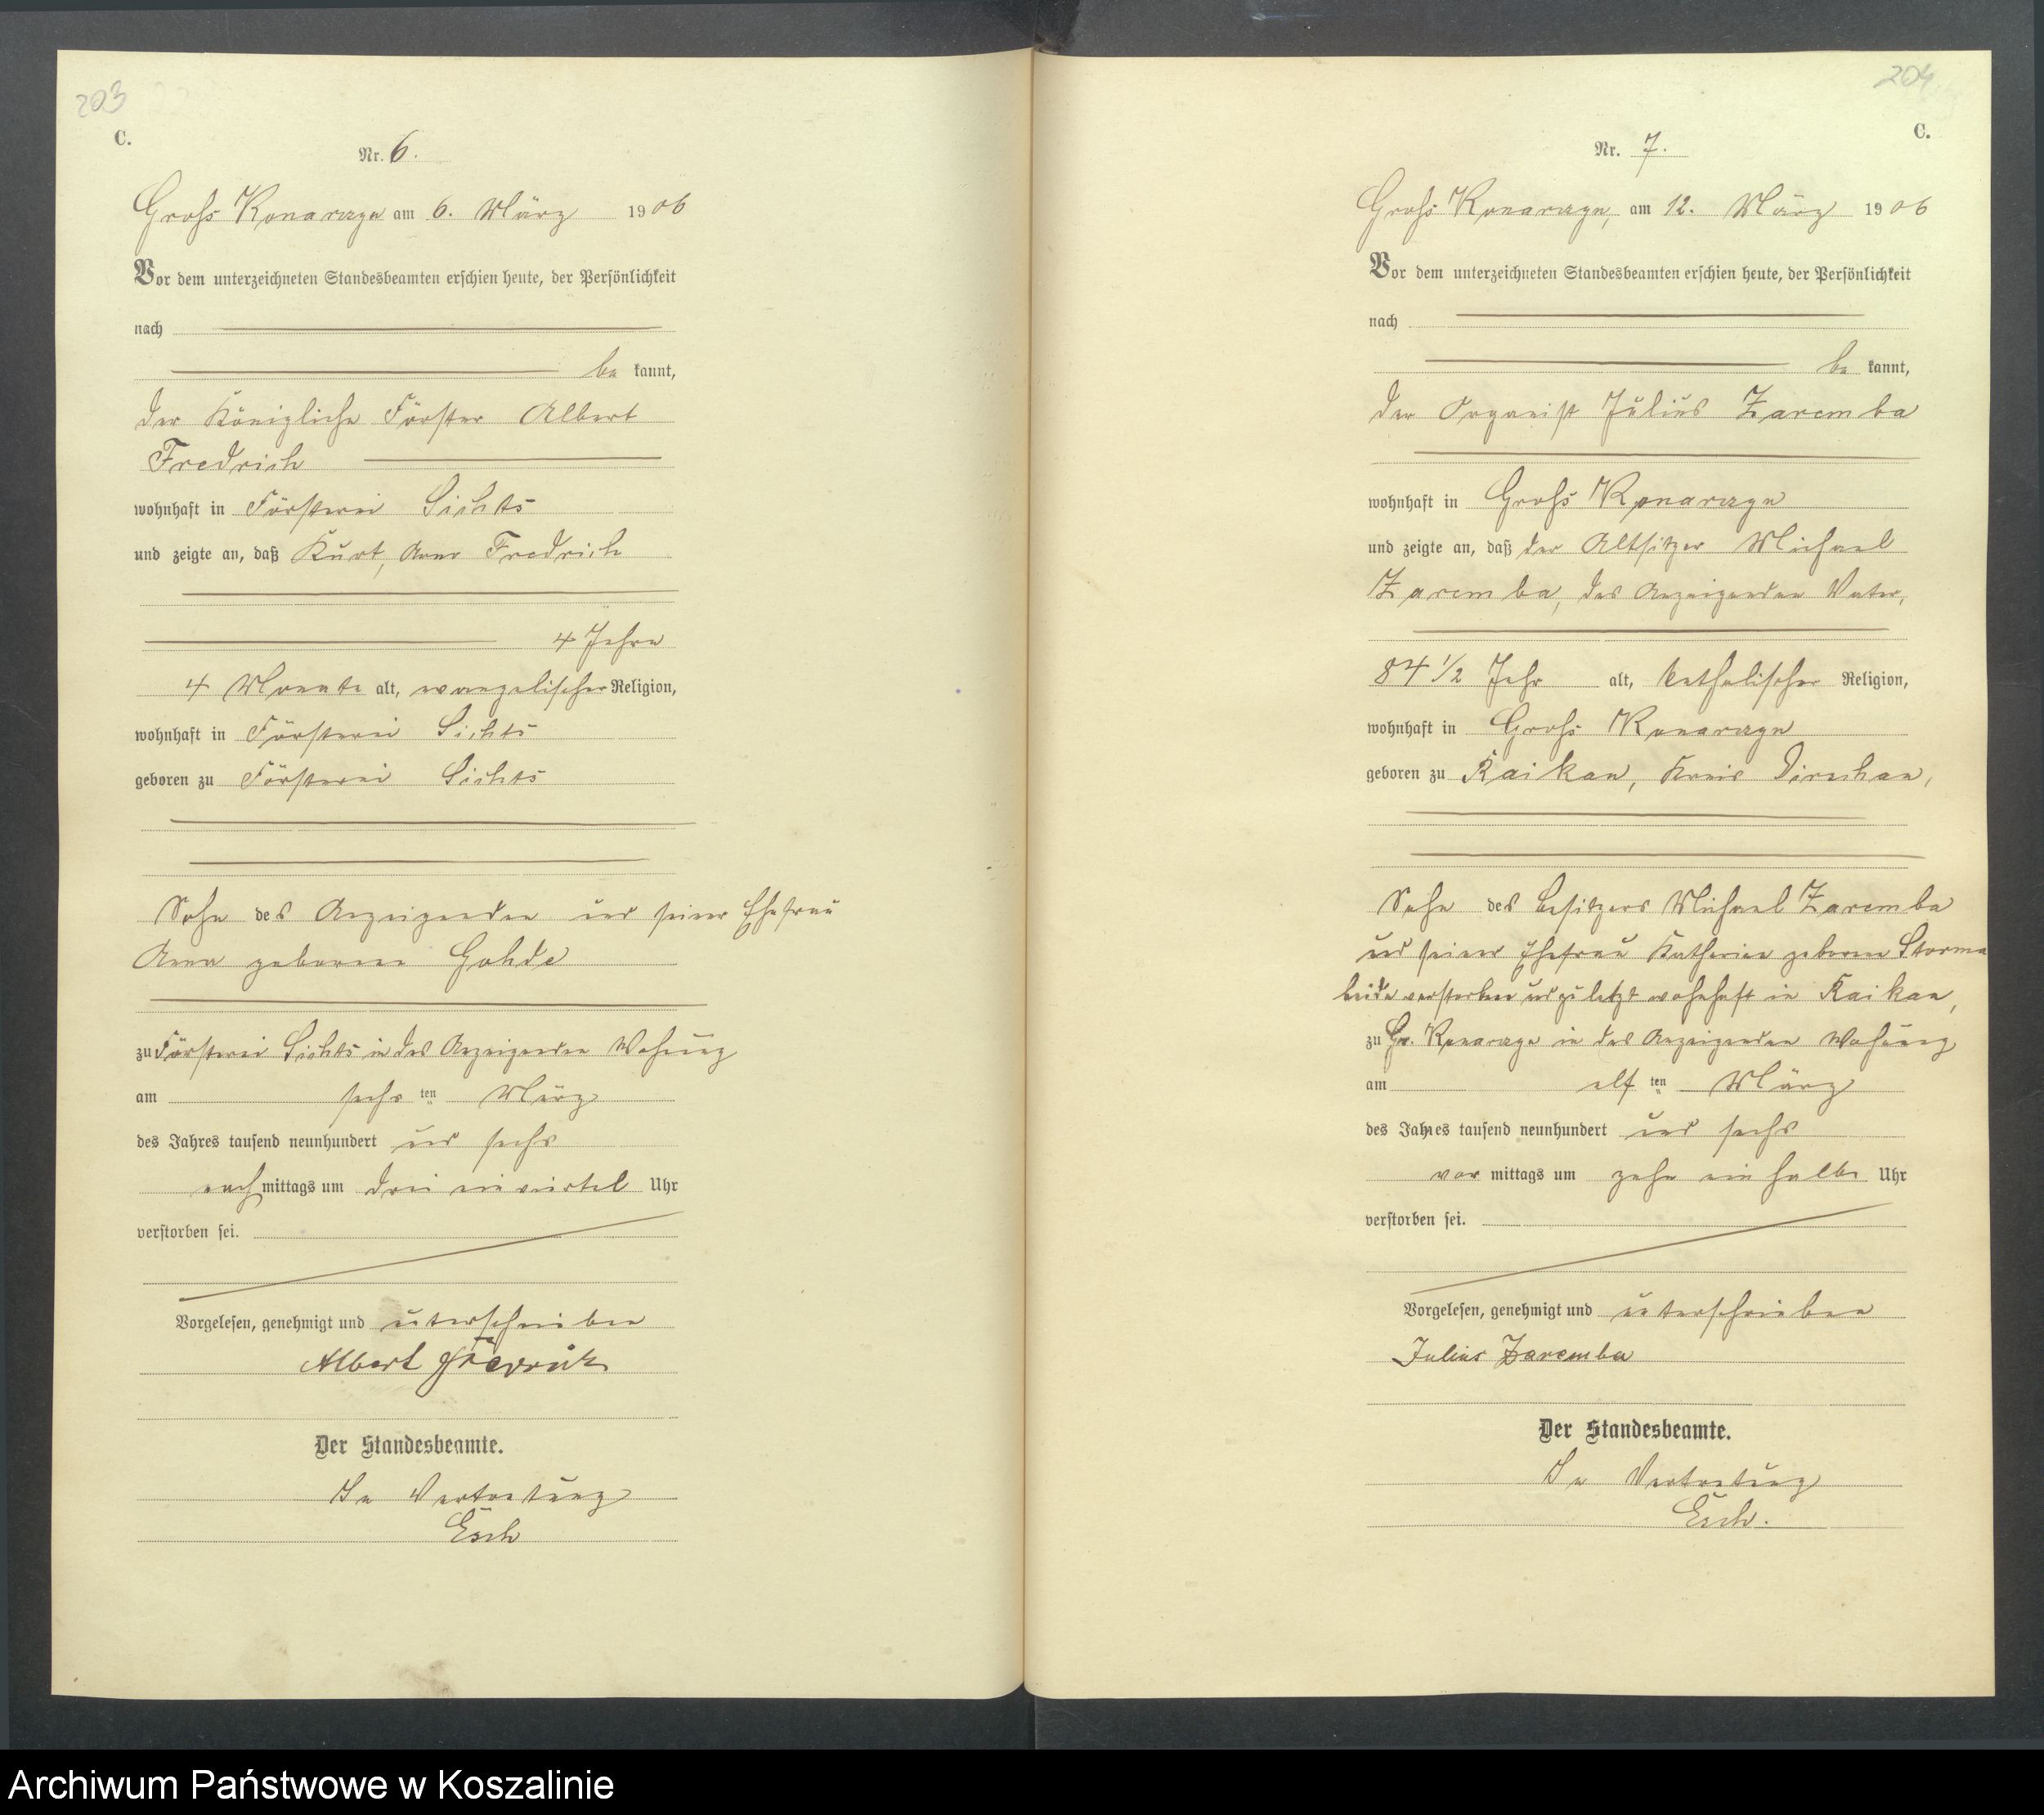 203
C.
Nr. 6.
Groß Konarzyn am 6. März 1906
Vor dem unterzeichneten Standesbeamten erschien heute, der Persönlichkeit
nach
be kannt,
der Königliche Förster Albert
Fredrich
wohnhaft in Försterei Sichts
und zeigte an, daß Kurt, Arno Fredrich
4 Jahre
4 Monate alt, evangelischer Religion,
wohnhaft in Försterei Sichts
geboren zu Försterei Sichts
Sohn des Anzeigenden und seiner Ehefrau
Anna geborenen Gohde
zu Försterei Sichts in des Anzeigenden Wohnung
am sechsten März
des Jahres tausend neunhundert und sechs
nach mittags um drei ein viertel Uhr
verstorben sei.
Vorgelesen, genehmigt und unterschrieben
Albert Fredrich
Der Standesbeamte.
In Vertretung
Esch
204
C.
Nr. 7.
Groß Konarzyn, am 12. März 1906
Vor dem unterzeichneten Standesbeamten erschien heute, der Persönlichkeit
nach
be kannt,
der Organist Julius Zaremba
wohnhaft in Groß Konarzyn
und zeigte an, daß der Altsitzer Michael
Zaremba, des Anzeigenden Vater,
84 1/2 Jahr alt, katholischer Religion,
wohnhaft in Groß Konarzyn
geboren zu Raikau, Kreis Dirschau,
Sohn des Besitzers Michael Zaremba
und seiner Ehefrau Katharina geborenen Storma
beide verstorben und zuletzt wohnhaft in Raikau,
zu Gr. Konarzyn in des Anzeigenden Wohnung
am elften März
des Jahres tausend neunhundert und sechs
vor mittags um zehn ein halb Uhr
verstorben sei.
Vorgelesen, genehmigt und unterschrieben
Julius Zaremba
Der Standesbeamte.
In Vertretung
Esch.
Archiwum Państwowe w Koszalinie